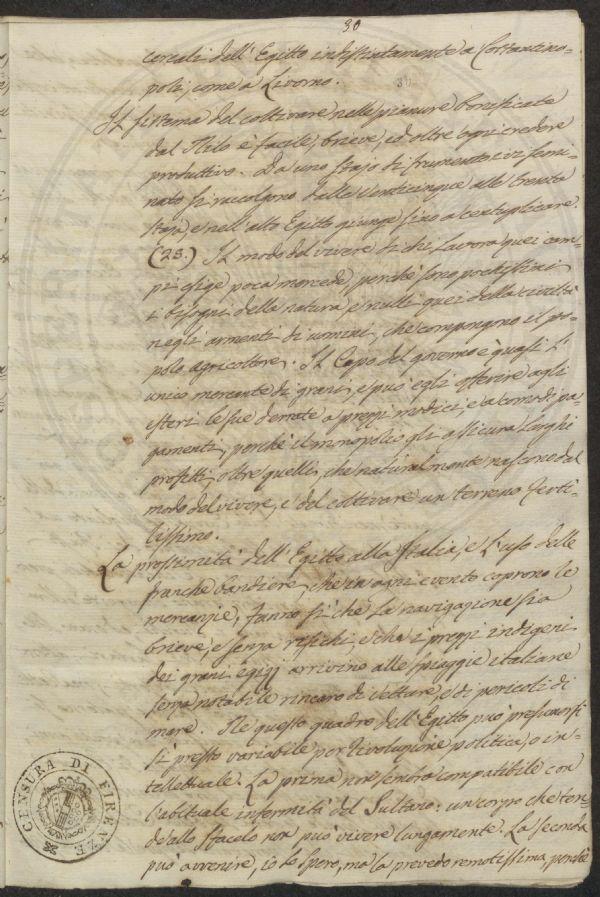 30
cereali dell'Egitto indistintamente a Costantino-
poli, come a Livorno.
Il sistema del coltivare nelle pianure bonificate
dal Nilo è facile, brieve, ed oltre ogni credere
produttivo. Da uno stajo di frumento ivi semi-
nato si raccolgono dalle venticinque alle trenta
staja, e nell'alto Egitto giunge sino a centuplicare.
(23.) Il modo del vivere di chi lavora quei cam-
pi esige poca mercede, perchè sono pochissimi
i bisogni della natura, e nulli quei della civiltà
negli armenti di uomini, che compongono il po-
polo agricoltore. Il Capo del governo è quasi l'
unico mercante di grani, e può egli offerire agli
esteri le sue derrate a prezzi modici, e a comodi pa-
gamenti, perchè il monopolio gli assicura larghi
profitti, oltre quelli, che naturalmente nascono dal
modo del vivere, e del coltivare un terreno ferti-
lissimo.
La prossimità dell'Egitto alla Italia, e l'uso delle
franche bandiere, che in ogni evento coprono le
mercanzie, fanno sì che la navigazione sia
brieve, e senza rischi, e che i prezzi indigeni
dei grani egizj arrivino alle spiaggie italiane
senza notabile rincaro di vetture, e di pericoli di
mare. Ne questo quadro dell'Egitto può presumersi
sì presto variabile per rivoluzione politica, o in-
tellettuale. La prima non sembra compatibile con
l'abituale infermità del Sultano: un corpo che ten-
de allo sfacelo non può vivere lungamente. La seconda
può avvenire, io lo spero, ma la prevedo remotissima, perchè
CENSURA DI FIRENZE